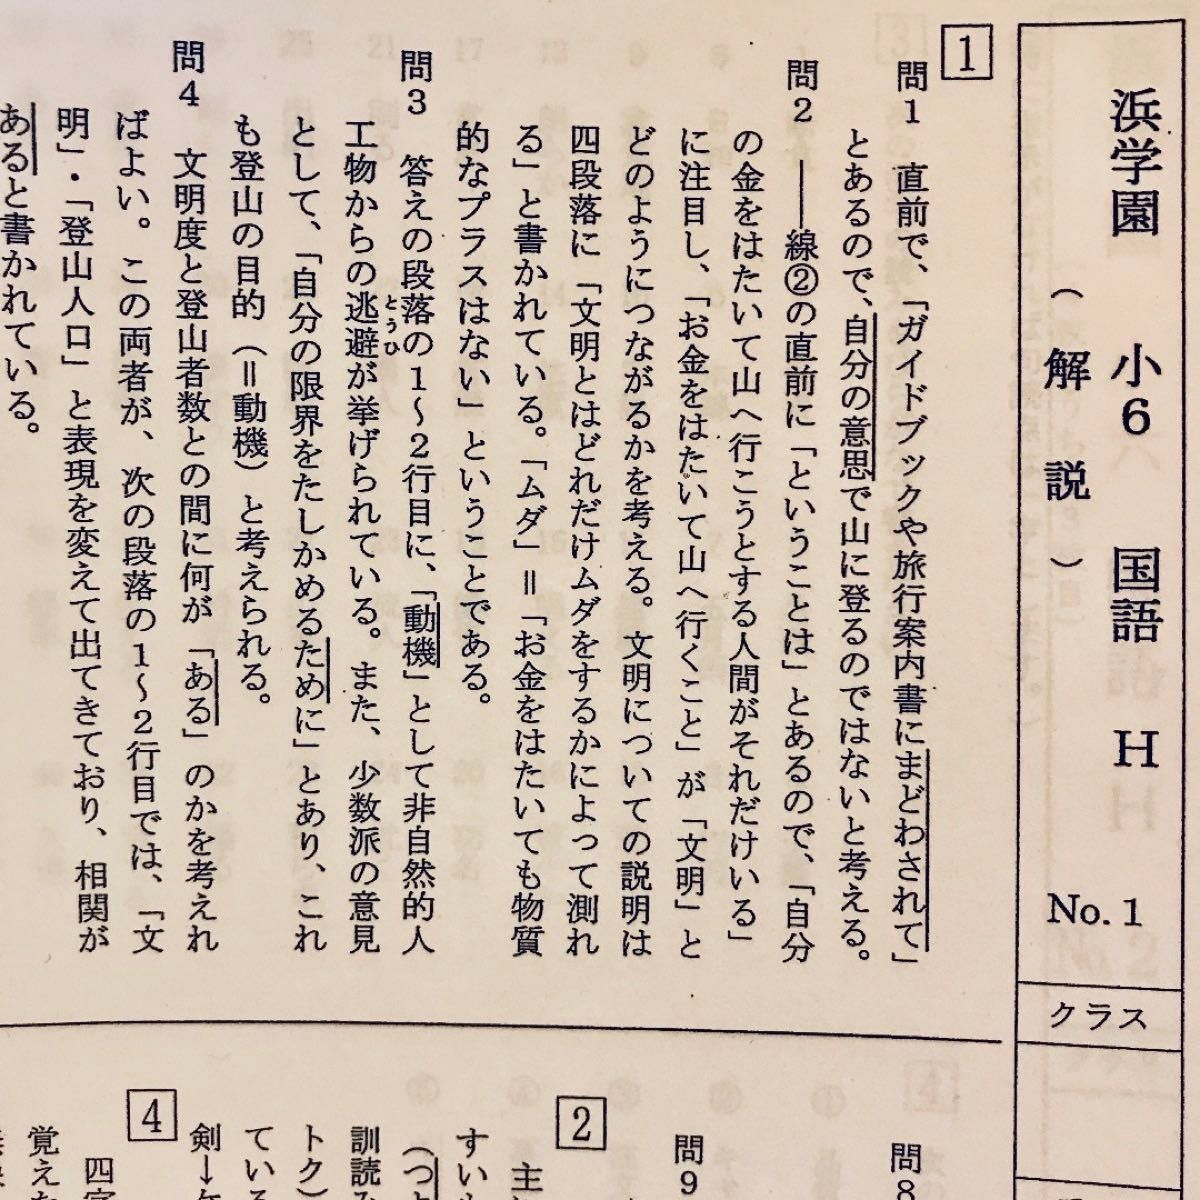 浜学園 小6 国語 H No.1
（解説）
クラス
1
問1 直前で、「ガイドブックや旅行案内書にまどわされて」
とあるので、自分の意思で山に登るのではないと考える。
問2 ――線②の直前に「ということは」とあるので、「自分
の金をはたいて山へ行こうとする人間がそれだけいる」
に注目し、「お金をはたいて山へ行くこと」が「文明」と
どのようにつながるかを考える。文明についての説明は
四段落に「文明とはどれだけムダをするかによって測れ
る」と書かれている。「ムダ」＝「お金をはたいても物質
的なプラスはない」ということである。
問3 答えの段落の1～2行目に、「動機」として非自然的人
工物からの逃避が挙げられている。また、少数派の意見
とうひ
として、「自分の限界をたしかめるために」とあり、これ
も登山の目的（＝動機）と考えられる。
問4 文明度と登山者数との間に何が「ある」のかを考えれ
ばよい。この両者が、次の段落の1～2行目では、「文
明」・「登山人口」と表現を変えて出てきており、相関が
あると書かれている。
問8
問9
2
主
すい
（つよ
訓読み
トク）
ている
剣→
4
四字
覚えた